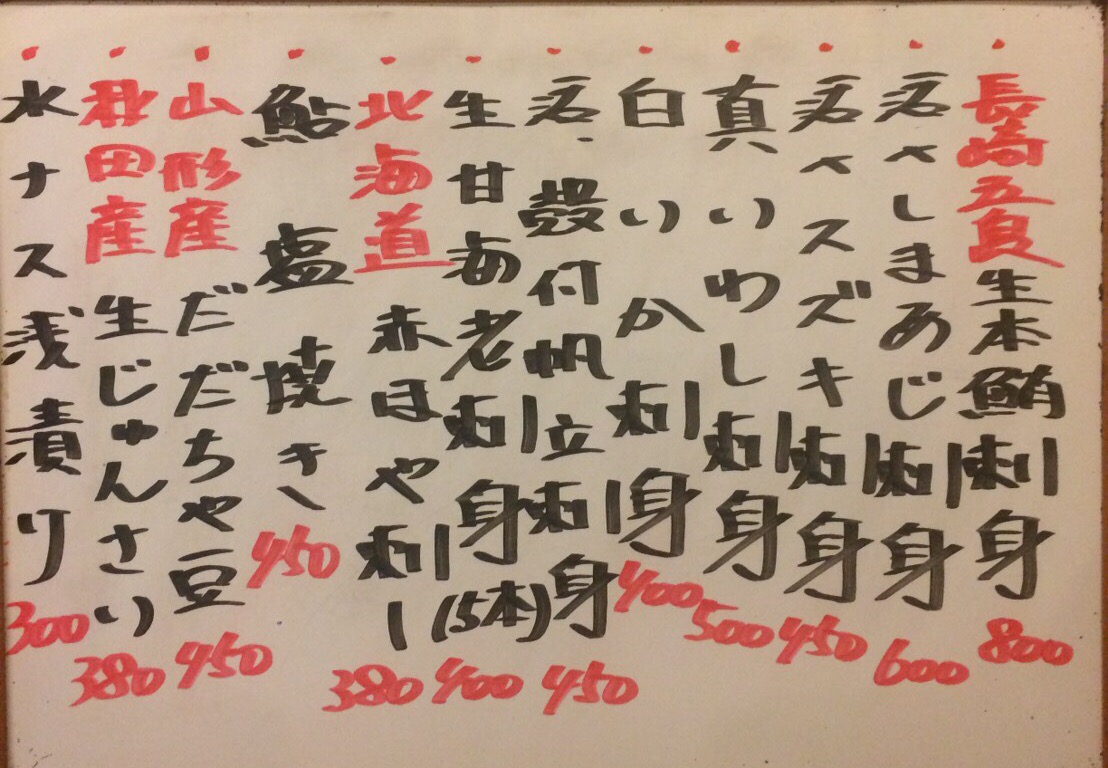 ・長崎五島生本鮪刺身 800
・活〆しまあじ刺身 600
・活〆スズキ刺身 450
・真いわし刺身 500
・白いか刺身 400
・活、殻付帆立刺身 450
・生甘海老刺身(5本) 400
・北海道赤ほや刺し 380
・鮎塩焼き 450
・山形産だだちゃ豆 450
・秋田産生じゅんさい 380
・水ナス浅漬り 300